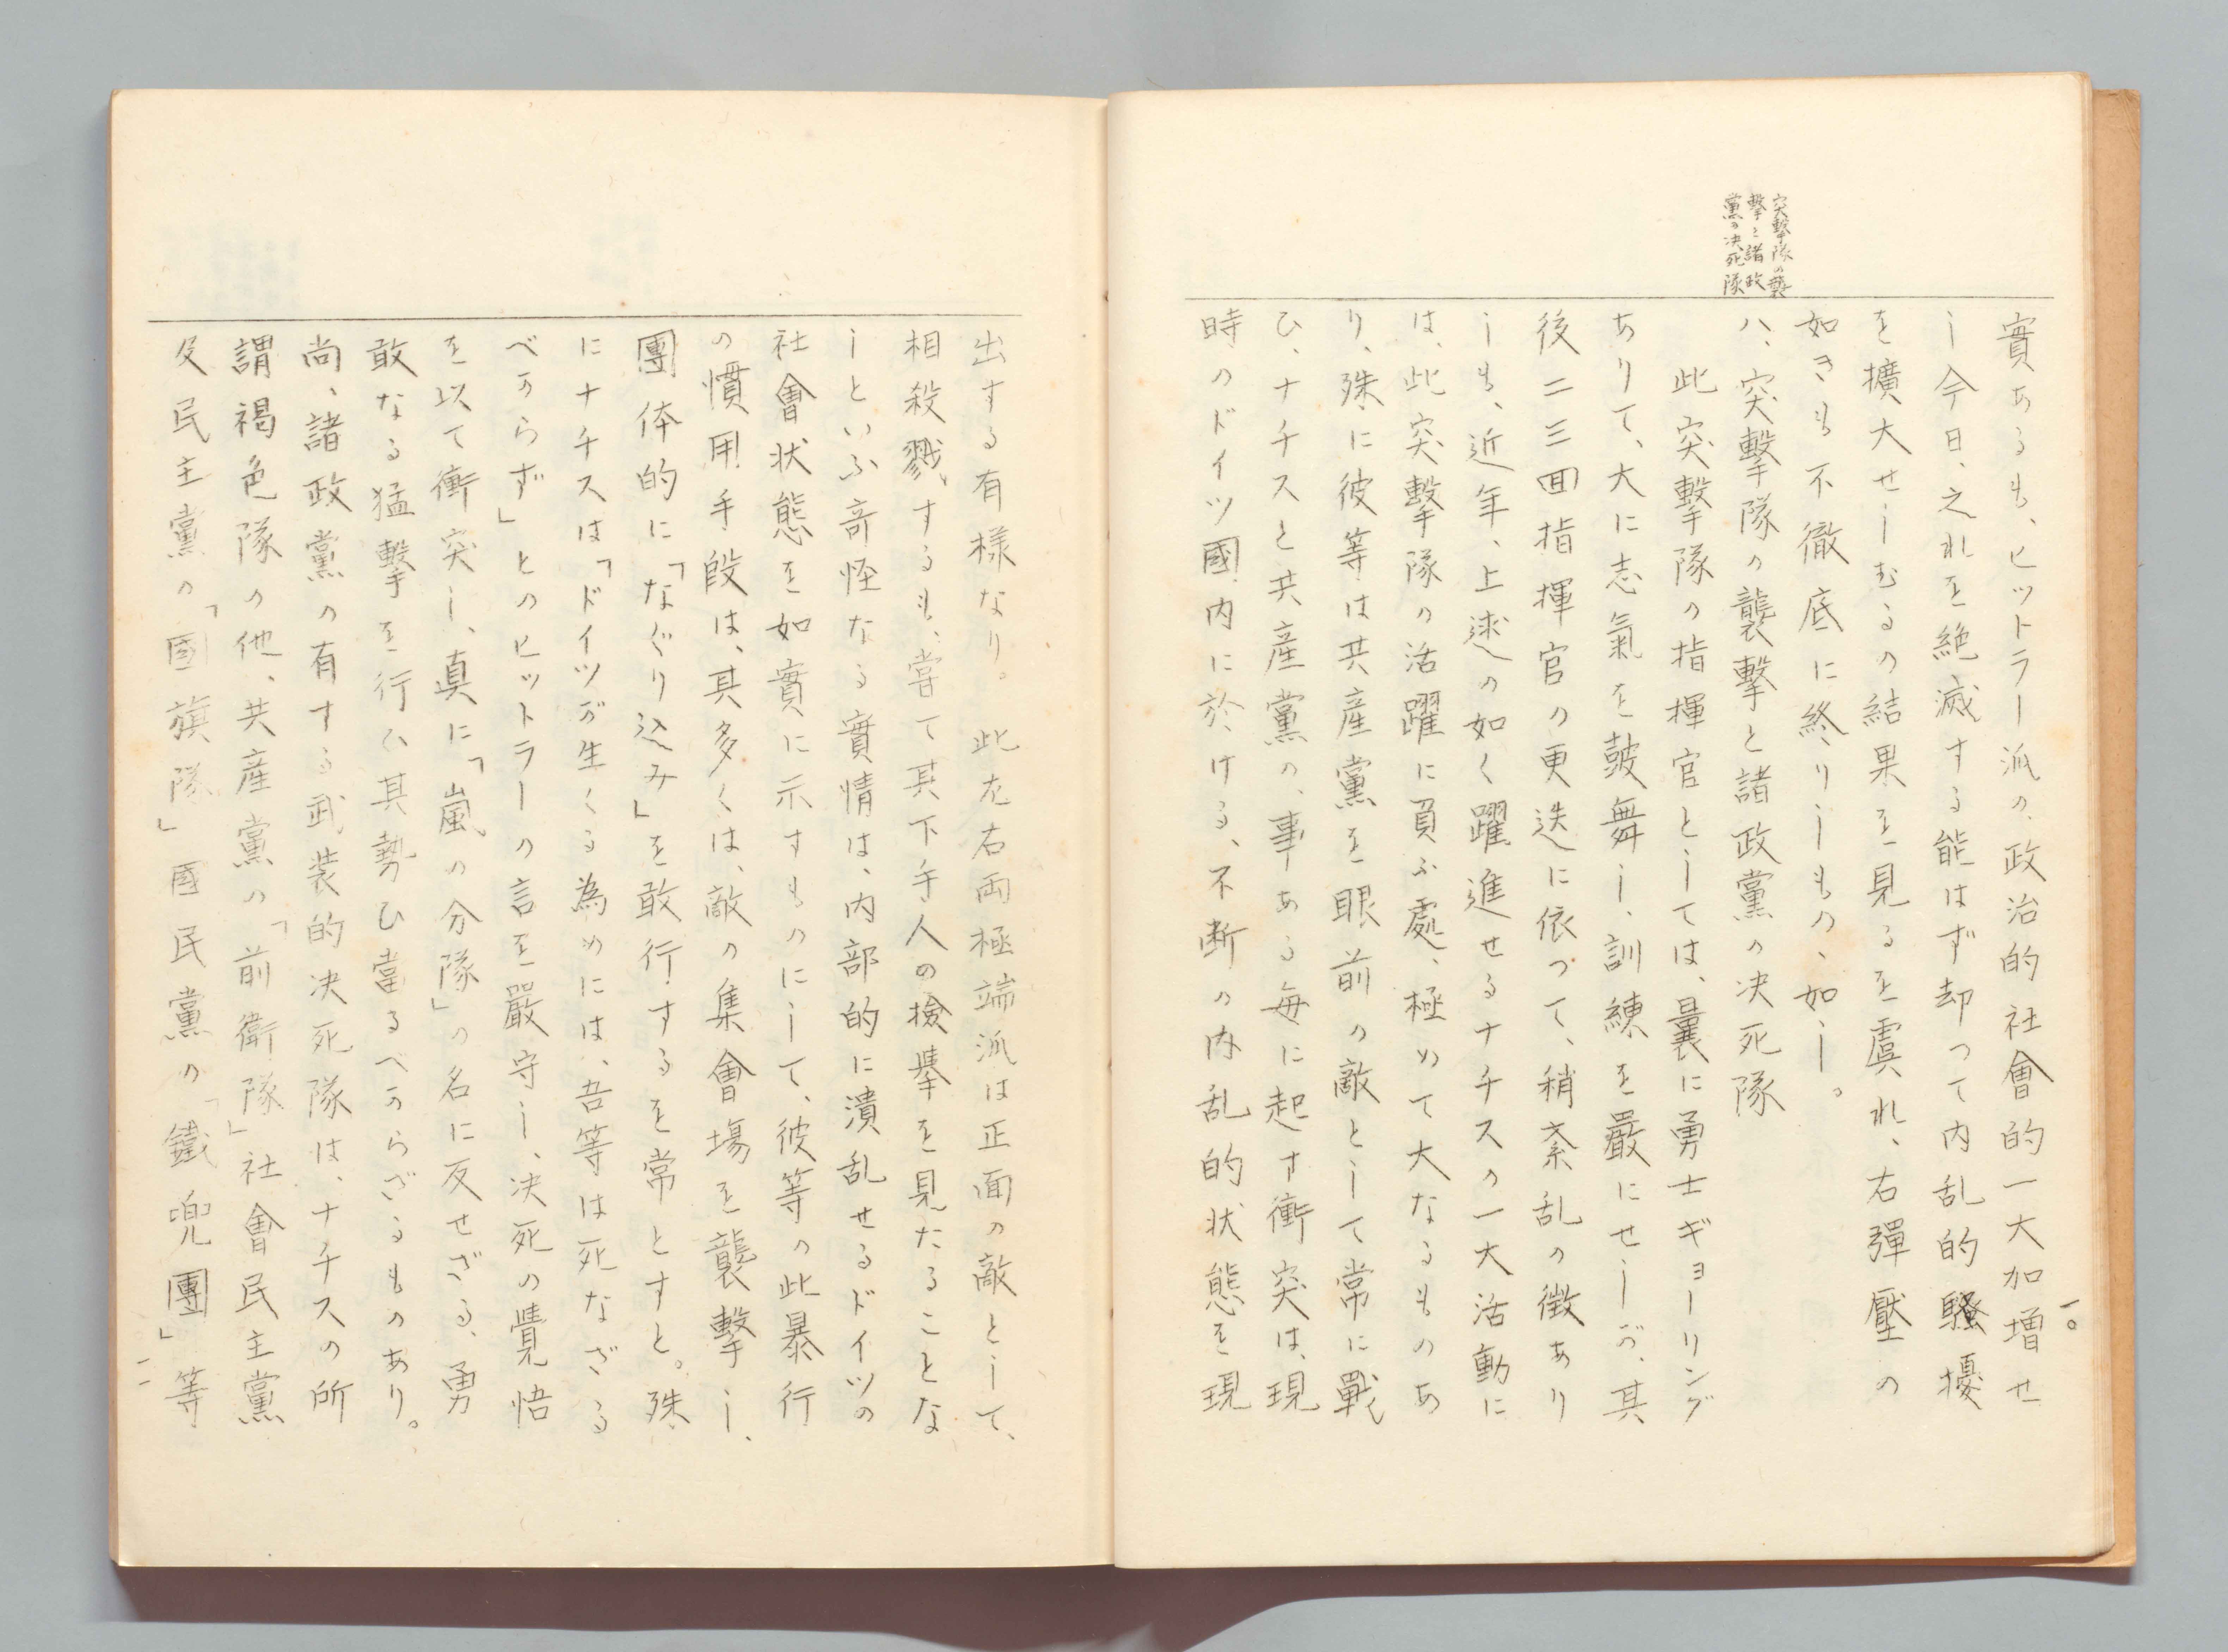 一〇
實あるも、ヒットラー派の政治的社會的一大加増せ
し今日、之れを絶滅する能はず却つて内乱的騷擾
を擴大せしむるの結果を見るを虞れ、右彈壓の
如きも不徹底に終りしもの、如し。
突擊隊の襲
擊と諸政
黨の决死隊
八、突擊隊の襲擊と諸政黨の决死隊
此突擊隊の指揮官としては、曩に勇士ギョーリング
ありて、大に志氣を鼓舞し、訓練を嚴にせしが、其
後二三回指揮官の更迭に依つて、稍紊乱の徴あり
しも、近年、上述の如く躍進せるナチスの一大活動に
は、此突擊隊の活躍に負ふ處、極めて大なるものあ
り、殊に彼等は共産黨を眼前の敵として常に戰
ひ、ナチスと共産黨の、事ある毎に起す衝突は、現
時のドイツ國内に於ける、不断の内乱的状態を現
出する有様なり。此左右両極端派は正面の敵として、
相殺戮するも、嘗て其下手人の檢擧を見たることな
しといふ奇怪なる實情は、内部的に潰乱せるドイツの
社會状態を如實に示すものにして、彼等の此暴行
の慣用手段は、其多くは、敵の集會場を襲擊し、
團体的に「なぐり込み」を敢行するを常とすと。殊
にナチスは「ドイツが生くる為めには、吾等は死なざる
べからず」とのヒットラーの言を嚴守し、决死の覺悟
を以て衝突し、真に「嵐の分隊」の名に反せざる、勇
敢なる猛擊を行ひ其勢ひ當るべからざるものあり。
尚、諸政黨の有する武装的决死隊は、ナチスの所
謂褐色隊の他、共産黨の「前衛隊」社會民主黨
及民主黨の「國旗隊」國民黨の「鐵兜團」等
一一